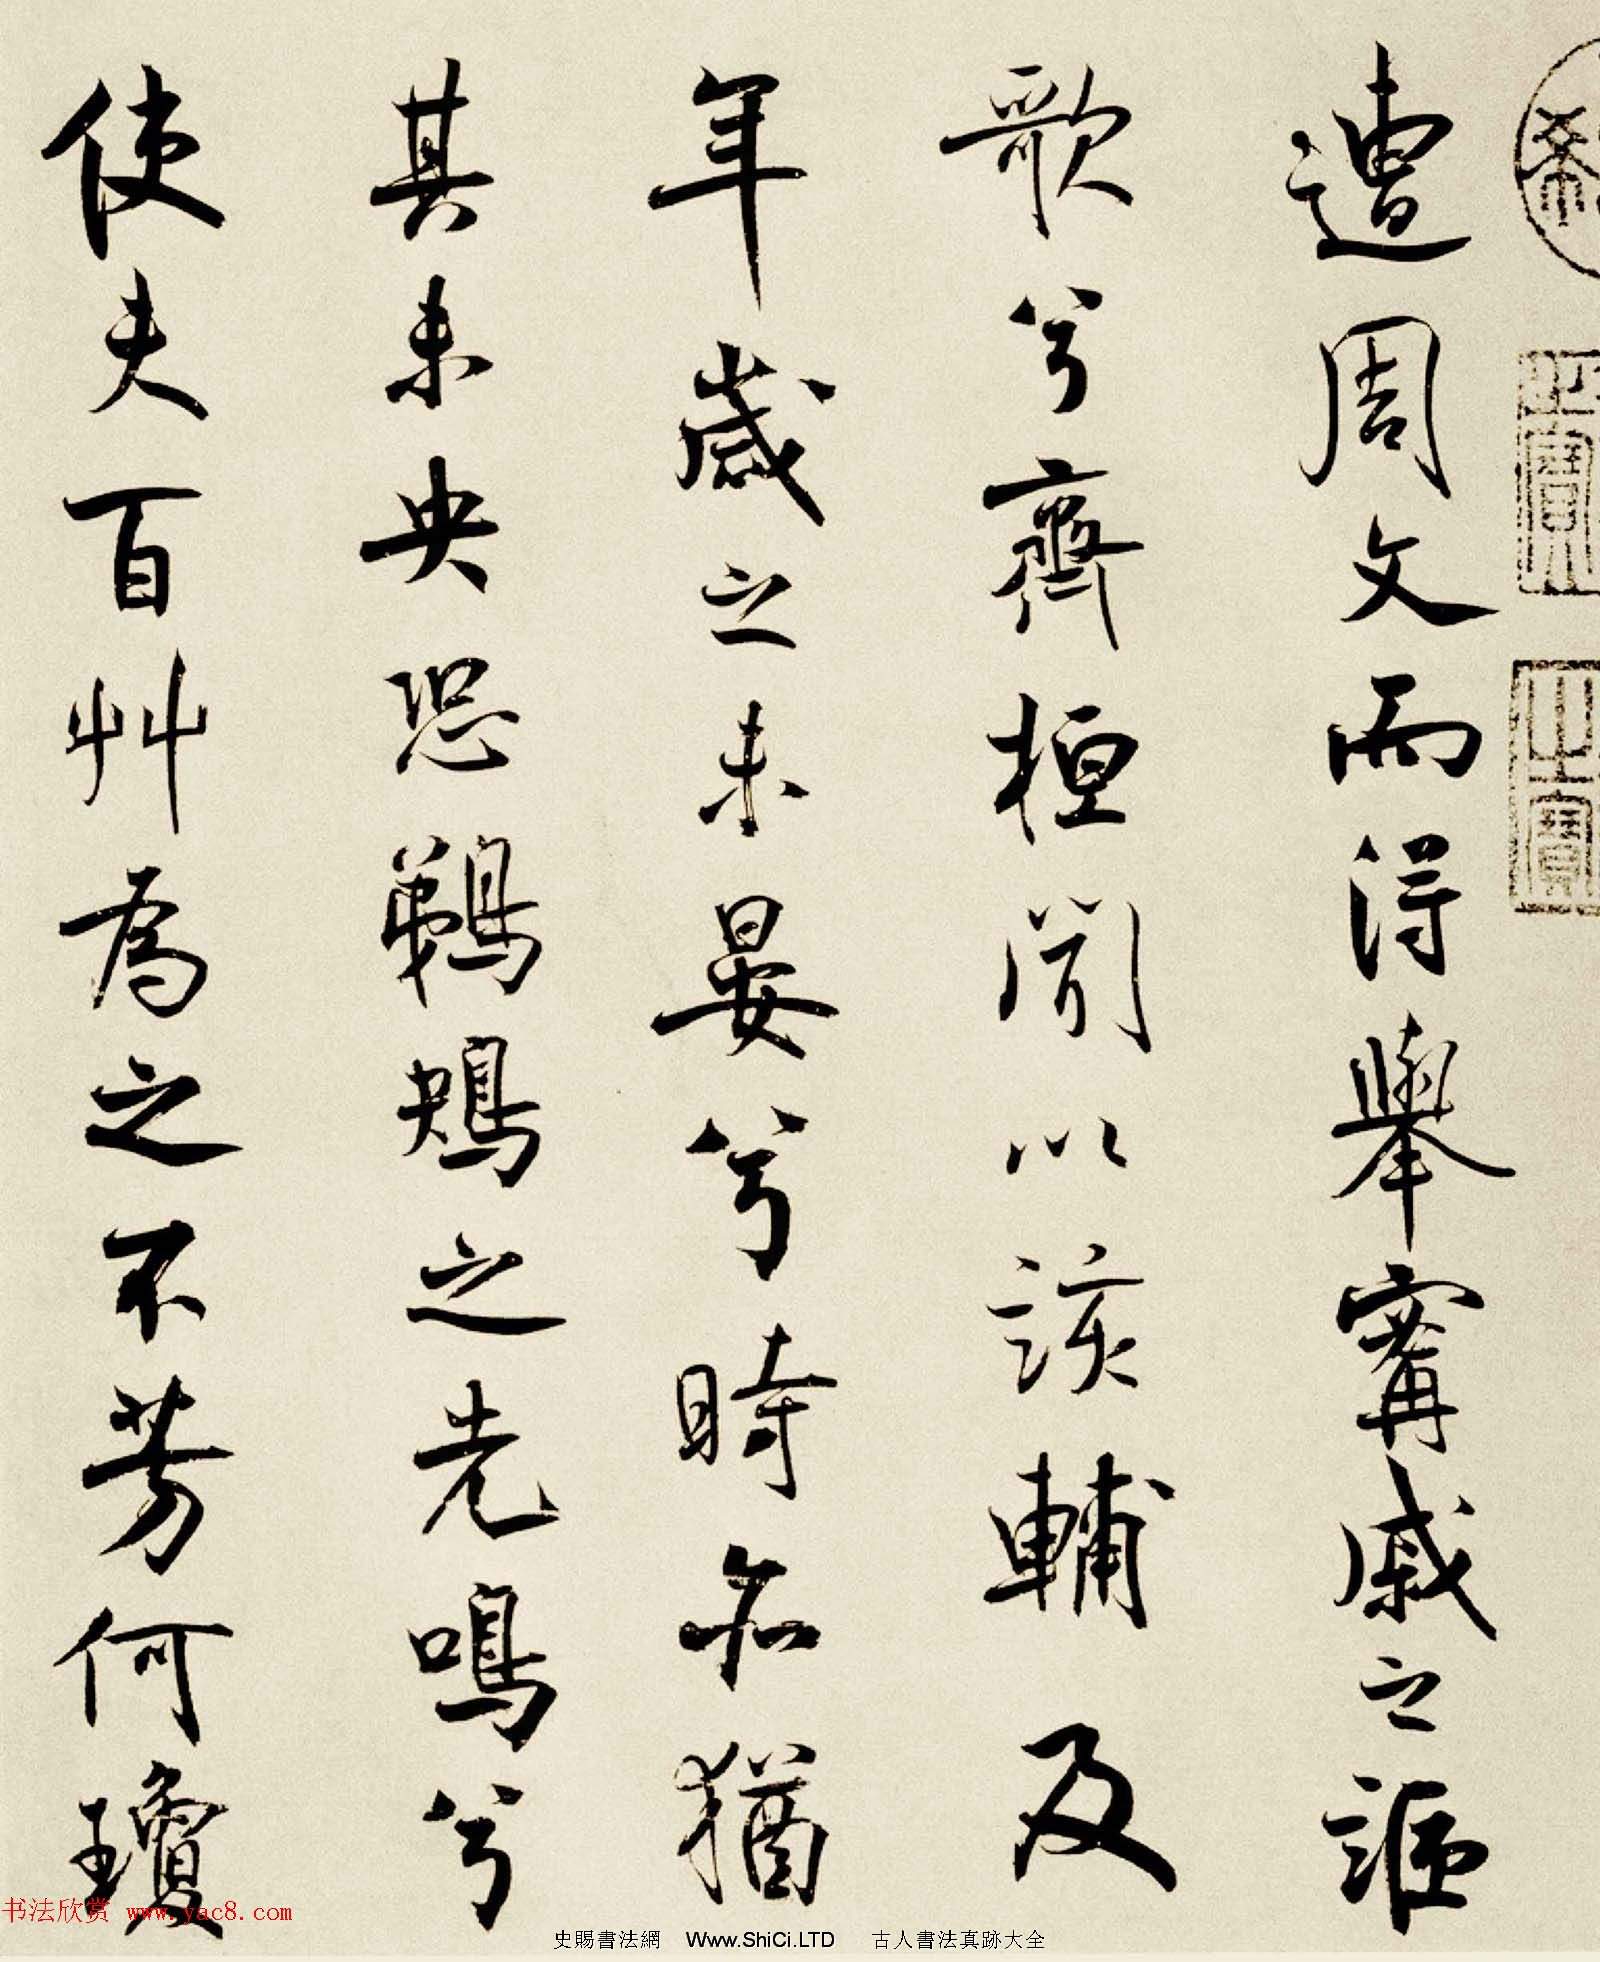 遭周文而得舉甯戚之謳
歌兮齊桓聞以該輔及
年歲之未晏兮時亦猶
其未央恐鵜鴂之先鳴兮
使夫百艸為之不芳何瓊
书法欣赏 www.yac8.com
史賜書法網 Www.ShiCi.LTD 古人書法真跡大全